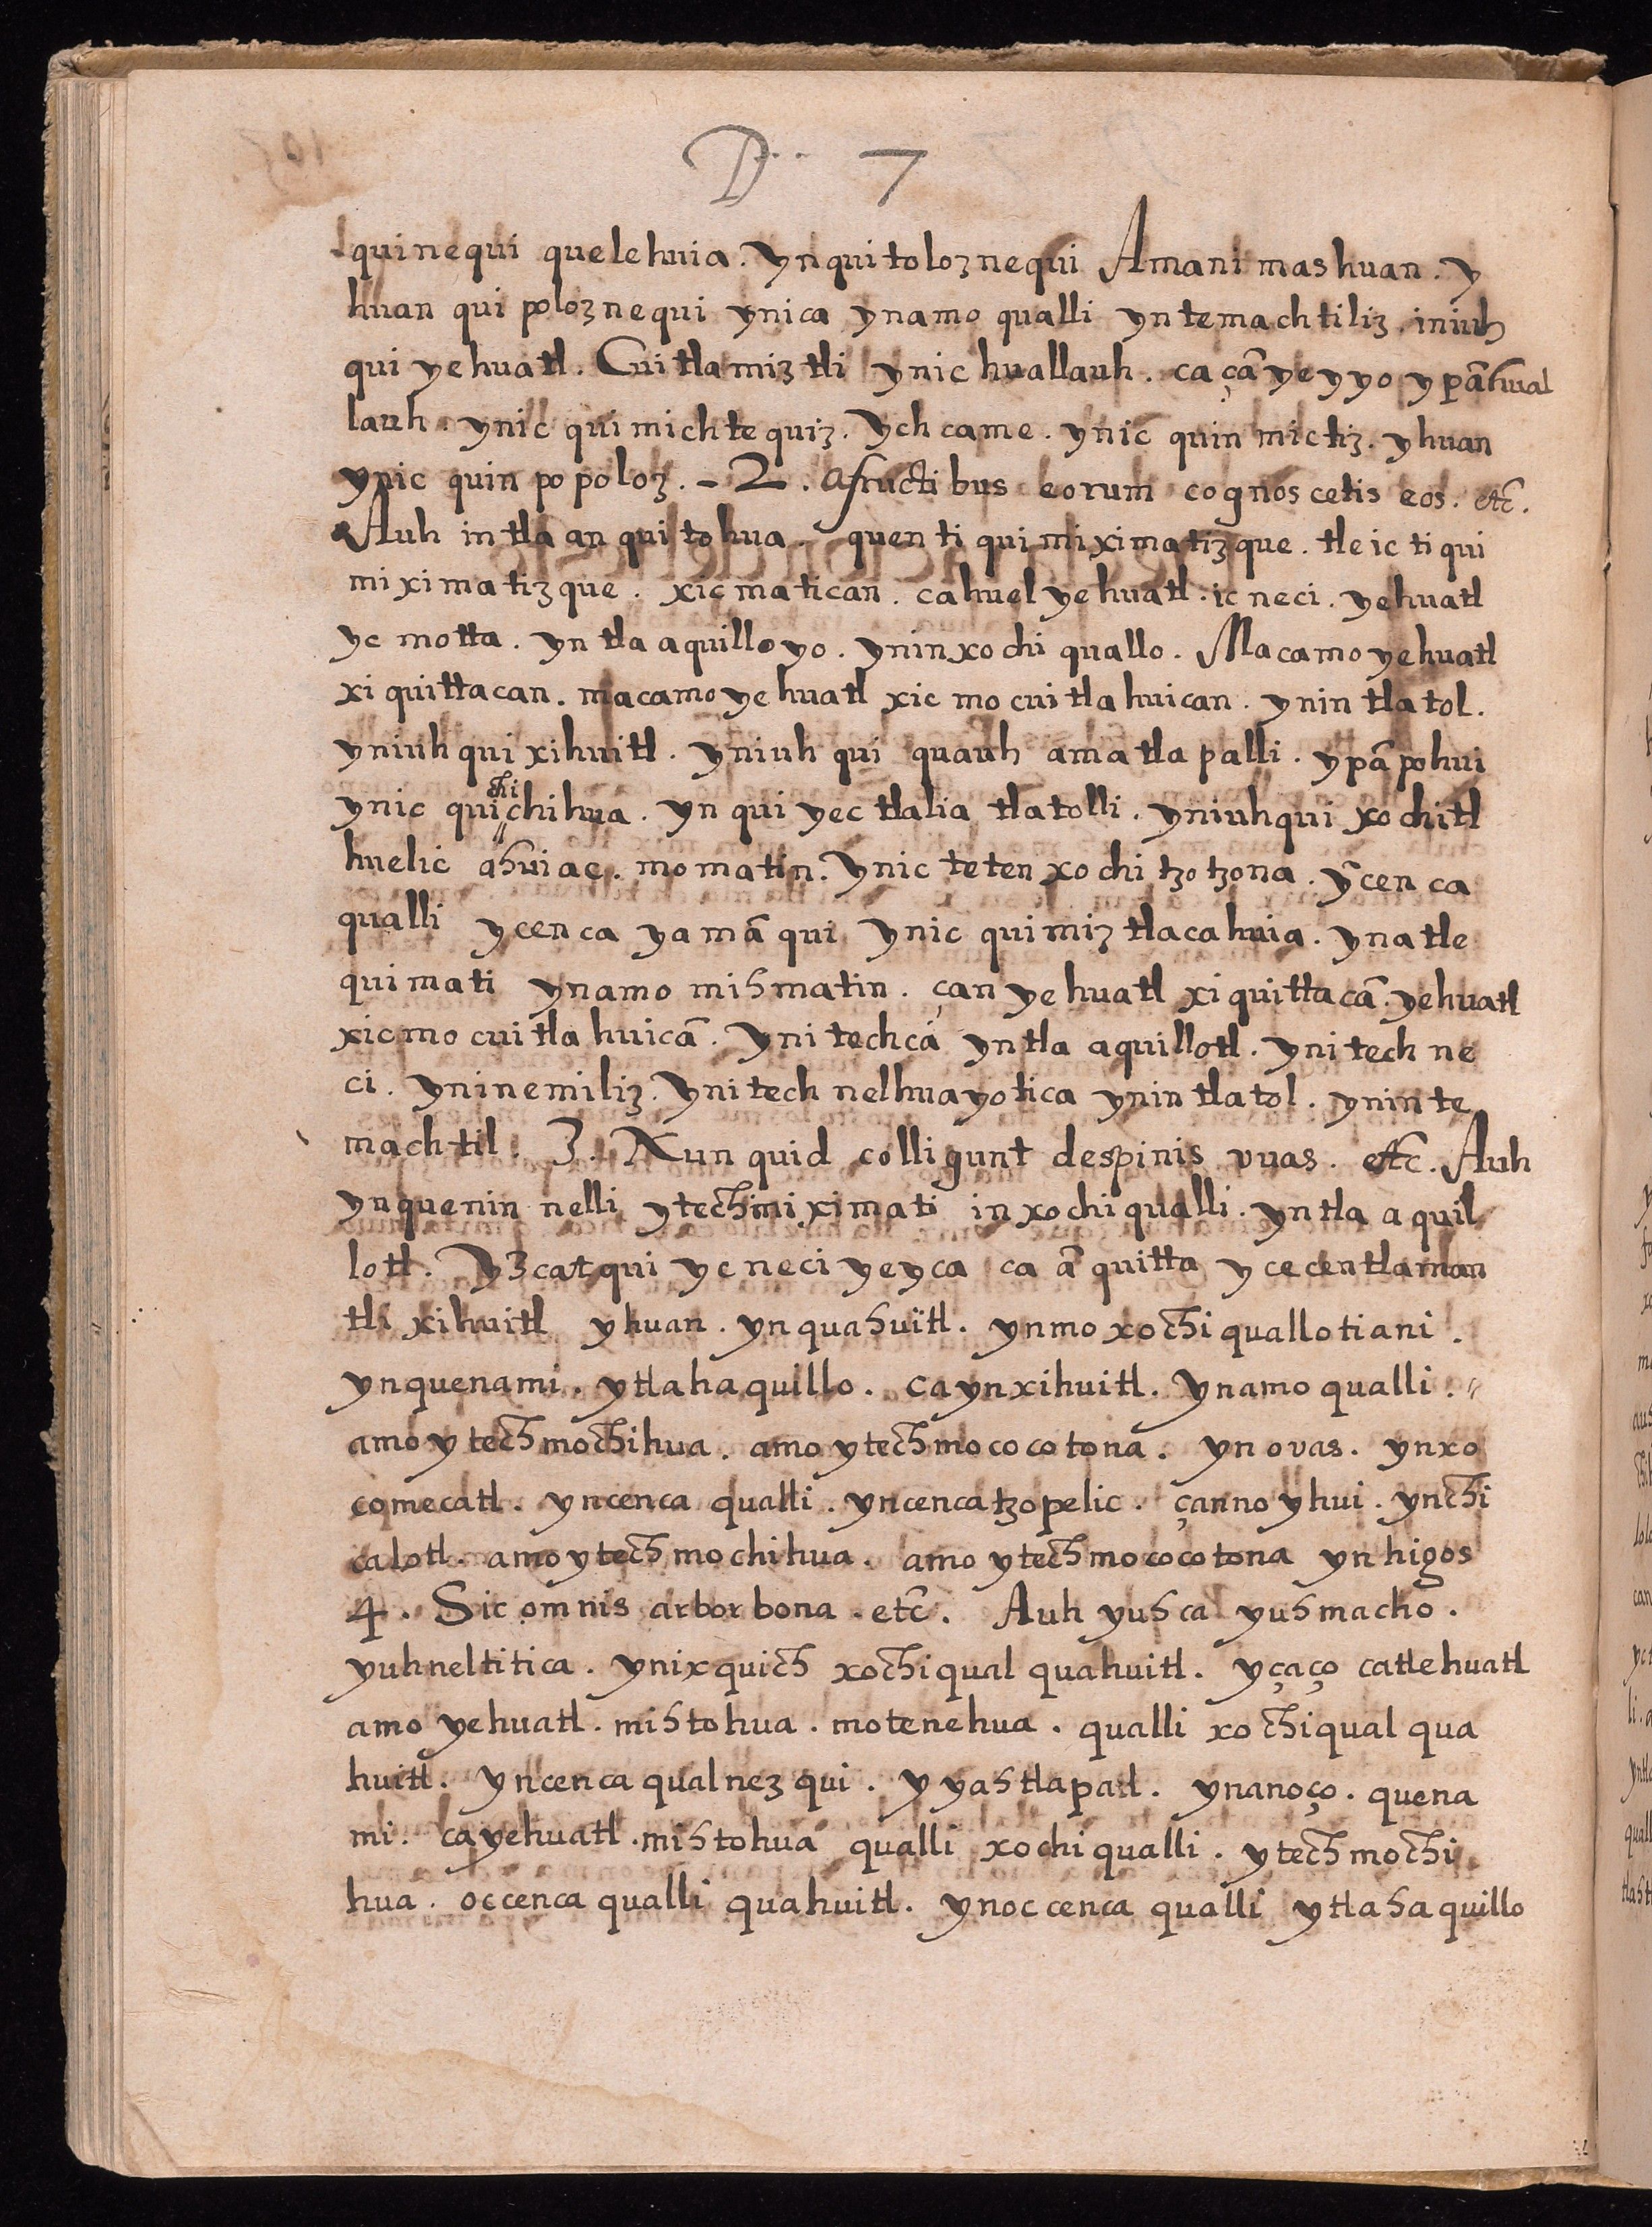 D. 7
quinequi quelehuia. ynquitoloznequi Amanimashuan. y
huan quipoloznequi ynica ynamo qualli yntemachtiliz. iniuh
qui yehuatl. Cuitlamiztli ynic huallauh. ca çā yeyyo ypāhual
lauh. ynic quimichtequiz. Ychcame. ynic quinmictiz. yhuan
ynic quinpopoloz. - 2. afructibus eorum cognoscetis eos. etc.
Auh intla anquitohua. quen tiquimiximatizque. tleic tiqui
miximatizque. xicmatican. cahuel yehuatl. ic neci. yehuatl
yc motta. yn tlaaquilloyo. yninxochiquallo. Macamo yehuatl
xiquittacan. macamo yehuatl xicmocuitlahuican. ynin tlatol.
yniuhqui xihuitl. yniuhqui quauh amatlapalli. ypā pohui
ynic quichichihua. yn quiyectlalia tlatolli. yniuhqui xochitl
huelic ahuiac. momatin. ynic tetenxochitzotzona. ycenca
qualli ycenca yamāqui ynic quimiztlacahuia. ynatle
quimati ynamo mihmatin. çan yehuatl xiquittacā. yehuatl
xicmocuitlahuicā. ynitechca yntlaaquillotl. ynitech ne
ci. yninemiliz. ynitech nelhuayotica ynin tlatol. ynin te
machtil. 3. Nunquid colligunt despinis vuas. etc. Auh
ynquenin nelli ytechmiximati inxochiqualli. yntlaaquil
lotl. Yzcatqui yc neci yeyca ca āquitta ycecentlaman
tli xihuitl yhuan. ynquahuitl. ynmoxochiquallotiani.
ynquenami. ytlahaquillo. caynxihuitl. ynamo qualli.
amo ytechmochihua. amo ytechmococotona. yn ovas. ynxo
comecatl. yncenca qualli. yncenca tzopelic. çanno yhui. ynchi
calotl. amo ytech mochihua. amo ytech mococotona yn higos
4. Sic omnis arbor bona. etc. Auh yuhca yuhmacho.
yuhneltitica. ynixquich xochiqualquahuitl. yçaço catlehuatl
amo yehuatl. mihtohua. motenehua. qualli xochiqualqua
huitl. yncenca qualnezqui. yyahtlapatl. ynanoço. quena
mi. cayehuatl. mihtohua qualli xochiqualli. ytechmochi
hua. occenca qualli quahuitl. ynoccenca qualli ytlahaquillo